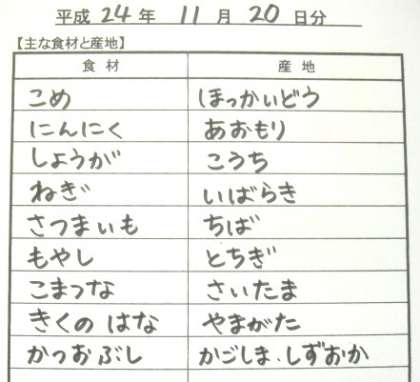 平成 24 年 11 月 20 日分
【主な食材と産地】
食 材 産 地
こめ ほっかいどう
にんにく あおもり
しょうが こうち
ねぎ いばらき
さつまいも ちば
もやし とちぎ
こまつな さいたま
きくの はな やまがた
かつおぶし かごしま.しずおか